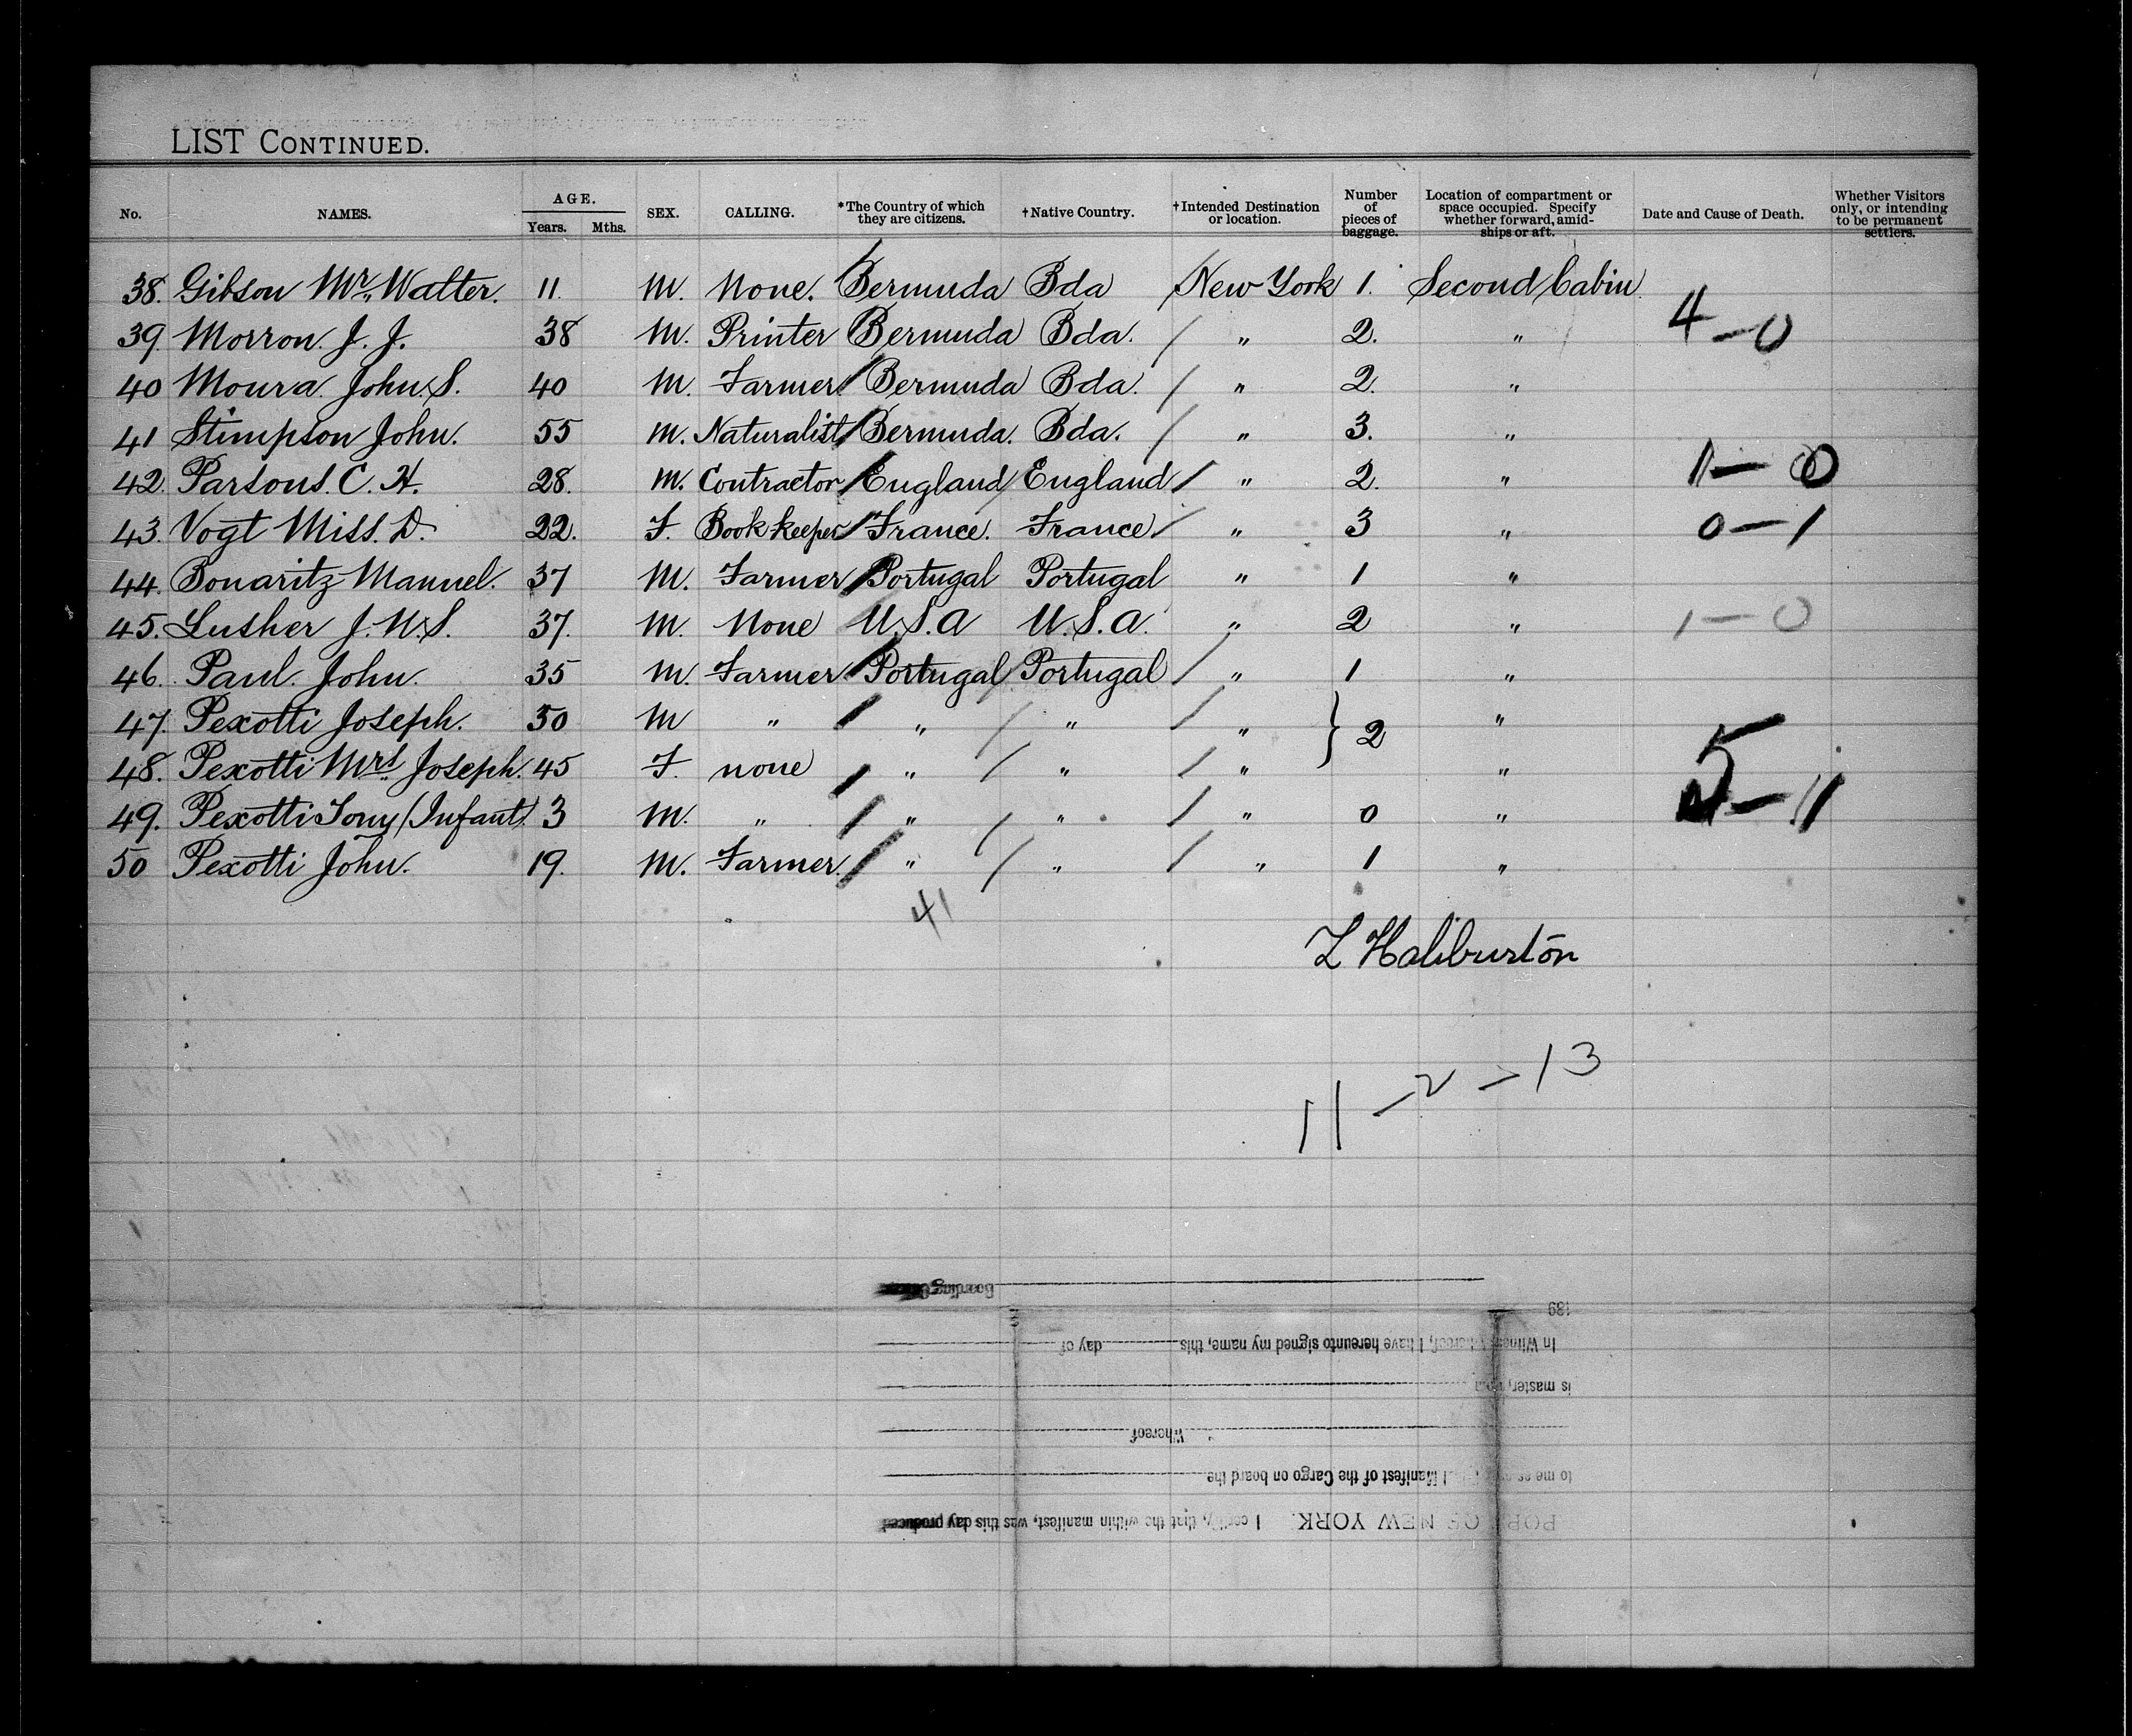 LIST CONTINUED.
No. NAMES. AGE. Years. Mths. SEX. CALLING. *The Country of which they are citizens. †Native Country. †Intended Destination or location. Number of pieces of baggage. Location of compartment or space occupied. Specify whether forward, amidships or aft. Date and Cause of Death. Whether Visitors only, or intending to be permanent settlers.
38. Gibson Mr. Walter. 11. M. None. Bermuda Bda New York 1. Second Cabin
4-0
39. Morron. J. J. 38 M. Printer Bermuda Bda. " 2. "
40 Moura. John. S. 40 M. Farmer Bermuda Bda. " 2. "
41 Stimpson John. 55 M. Naturalist Bermuda. Bda. " 3. "
42. Parsons. C. H. 28. M. Contractor England England " 2. " 1-0
43. Vogt Miss. D. 22. F. Bookkeeper France. France " 3 " 0-1
44. Bonaritz Manuel. 37 M. Farmer Portugal Portugal " 1 "
45. Lusher J. W. S. 37. M. None U.S.A U.S.A. " 2 " 1-0
46. Paul. John. 35 M. Farmer Portugal Portugal " 1 "
47. Pexotti Joseph. 50 M " " " " } 2 "
48. Pexotti Mrs Joseph. 45 F. none " " " "
5-1
49. Pexotti Tony (Infant) 3 M. " " " " 0 "
50 Pexotti John. 19. M. Farmer. " " " 1 "
41
L Haliburton
11-2-13
Boarding
189
In Witness whereof, I have hereunto signed my name, this day of
is master, from
Whereof
to me as Manifest of the Cargo on board the
PORT OF NEW YORK. I certify, that the within manifest, was this day produced